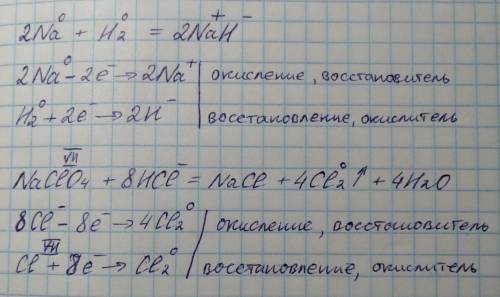 2Na⁰ + H₂⁰ = 2Na⁺H⁻
2Na⁰ - 2e⁻ → 2Na⁺ | окисление, восстановитель
H₂⁰ + 2e⁻ → 2H⁻ | восстановление, окислитель
VII
NaClO₄ + 8HCl⁻ = NaCl + 4Cl₂⁰↑ + 4H₂O
8Cl⁻ - 8e⁻ → 4Cl₂⁰ | окисление, восстановитель
+VII
Cl + 8e⁻ → Cl₂⁰ | восстановление, окислитель